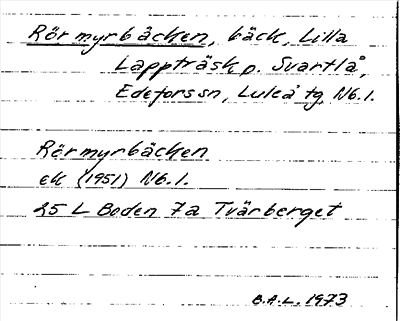 Rörmyrbäcken, bäck, Lilla
Lappträsk p. Svartlå,
Edeforssn, Luleå tg, Nb.1.
Rörmyrbäcken
ek (1951) Nb.1.
25 L Boden 7a Tvärberget
B.A.L. 1973